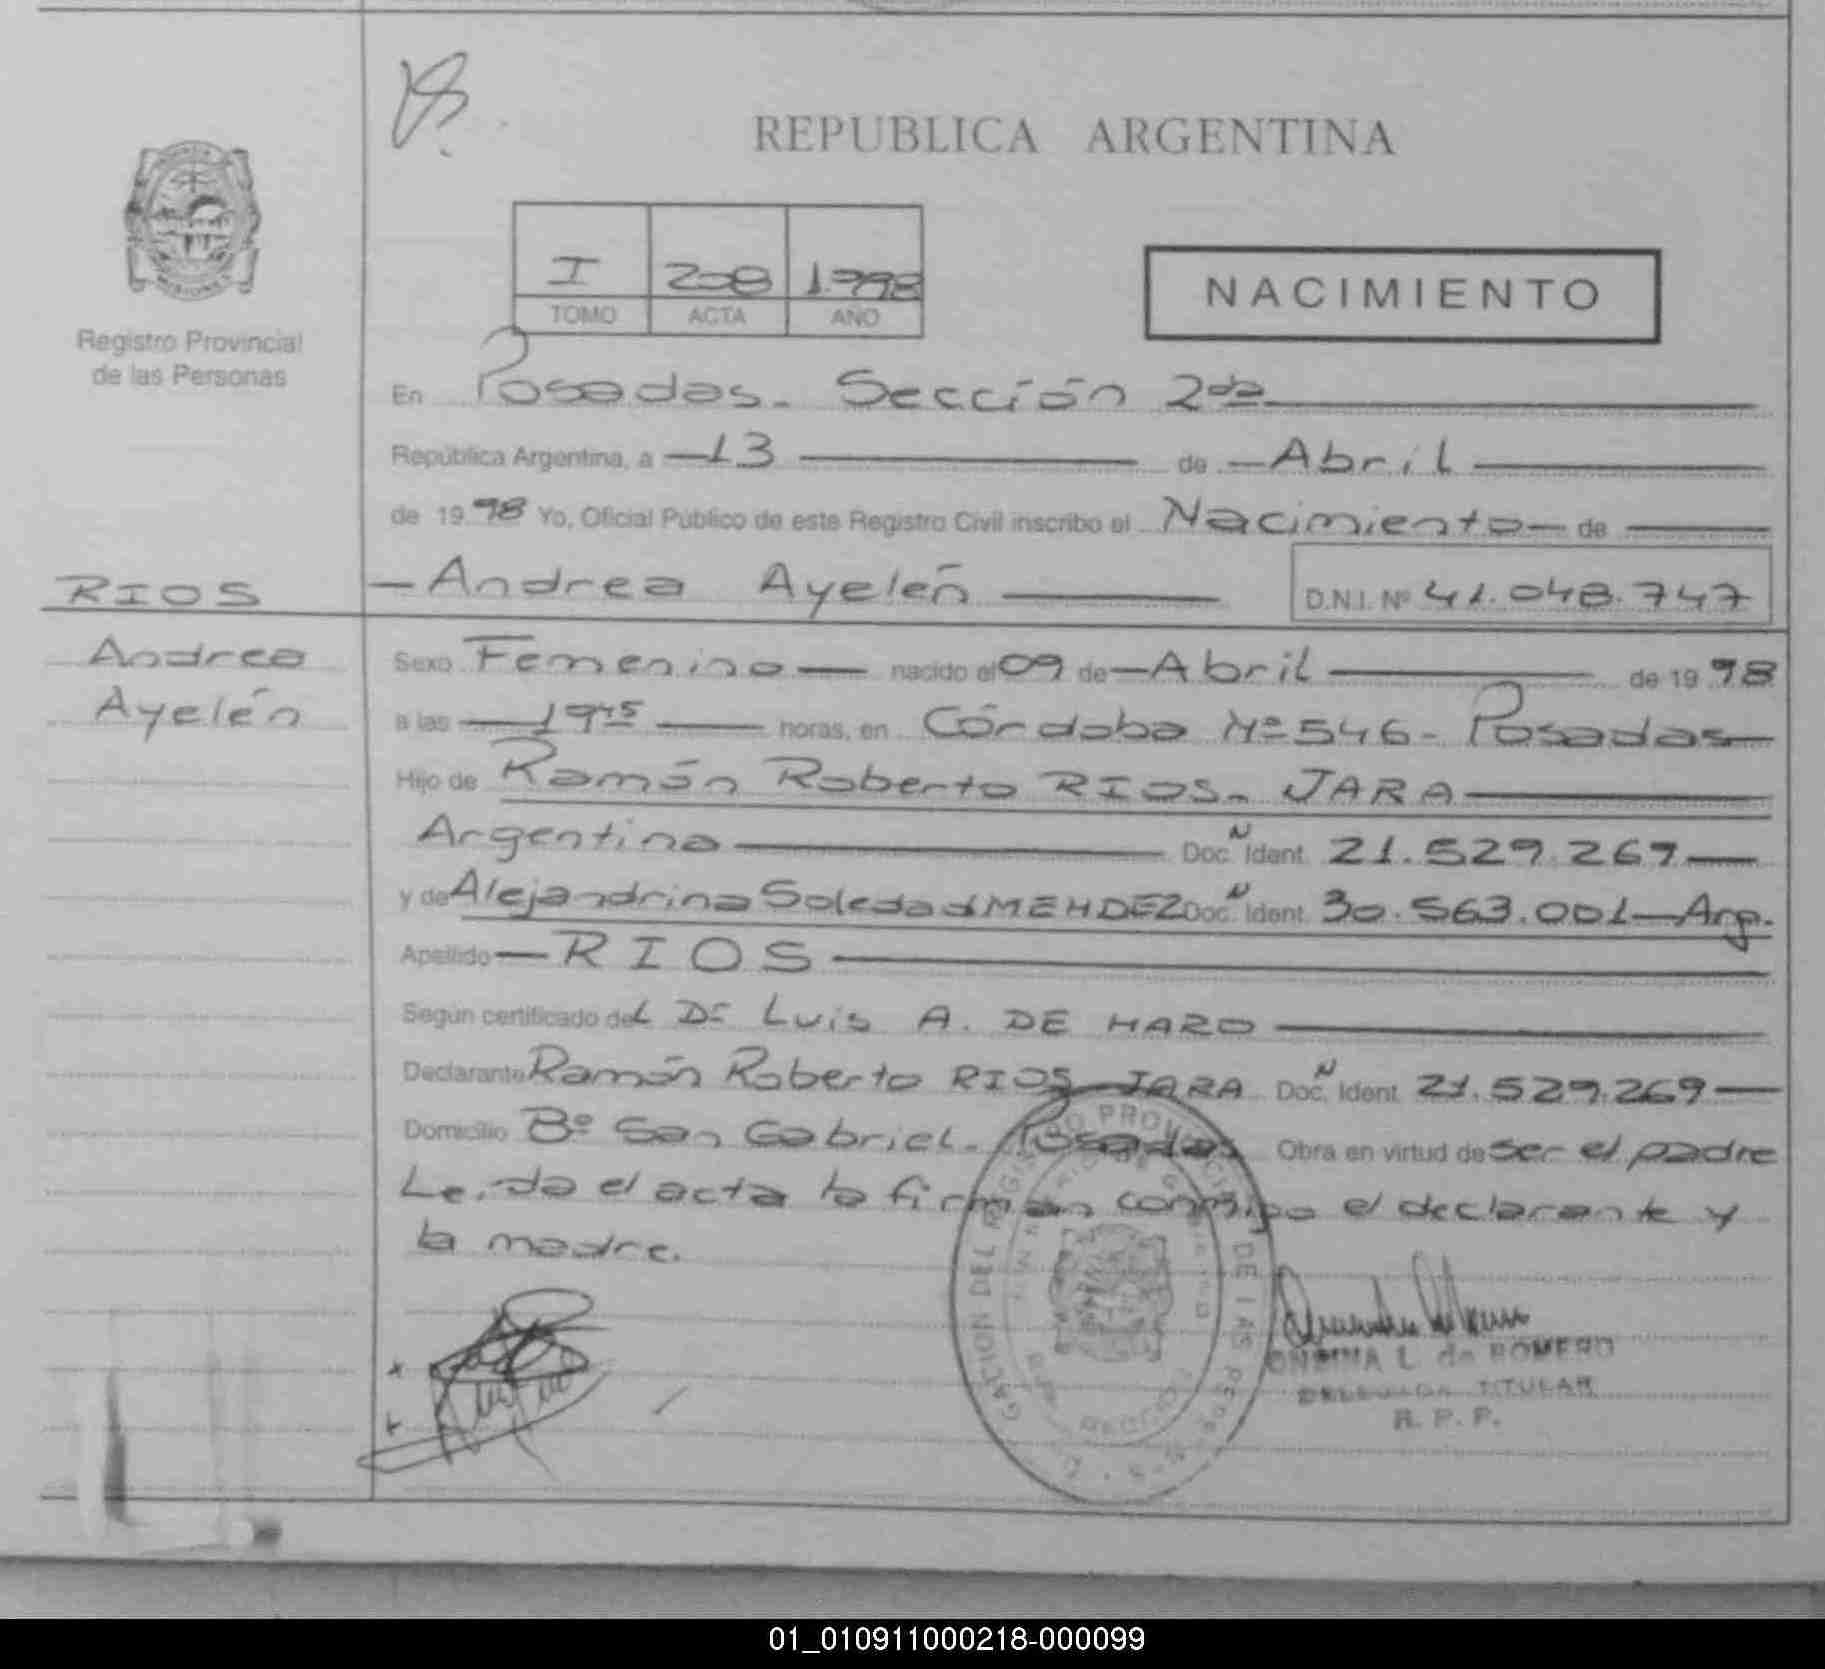 REPUBLICA ARGENTINA
I 208 1.998
TOMO ACTA AÑO
NACIMIENTO
Registro Provincial
de las Personas
En Posadas. Sección 2da
República Argentina, a 13 de Abril
de 1998 Yo, Oficial Público de este Registro Civil inscribo el Nacimiento de
RIOS
Andrea Ayelén D.N.I. Nº 41.048.747
Andrea
Ayelén
Sexo Femenino nacido el 09 de Abril de 1998
a las 19 45 horas, en Córdoba Nº 546 - Posadas
Hijo de Ramón Roberto RIOS - JARA
Argentino Doc. N Ident. 21.529.269
y de Alejandrina Soledad MENDEZ Doc. N Ident. 30.563.001 - Arg.
Apellido RIOS
Según certificado del Dr Luis A. DE HARO
Declarante Ramón Roberto RIOS JARA Doc. N Ident. 21.529.269
Domicilio Bº San Gabriel - Posadas Obra en virtud de ser el padre
Leída el acta la firman conmigo el declarante y
la madre.
L. de ROMERO
TITULAR
R. P. P.
01_010911000218-000099